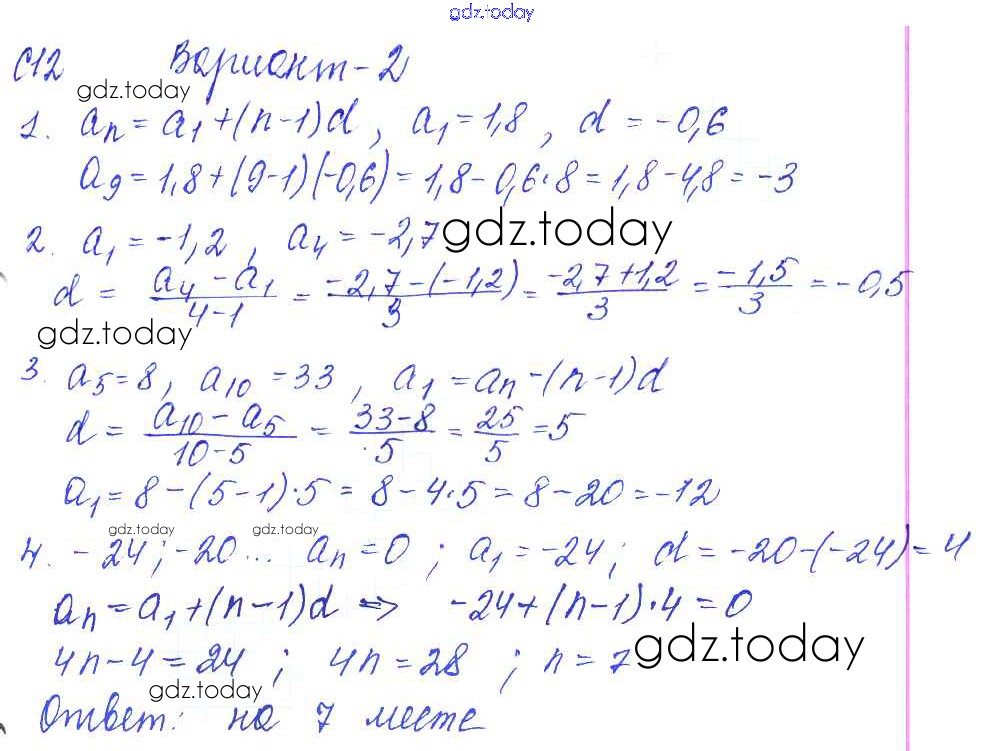 gdz.today
С12 Вариант-2
gdz.today
1. an = a1+(n-1)d, a1=1,8, d = -0,6
a9 = 1,8+(9-1)(-0,6) = 1,8-0,6·8 = 1,8-4,8 = -3
2. a1 = -1,2, a4 = -2,7 gdz.today
d = (a4 - a1)/(4-1) = (-2,7-(-1,2))/3 = (-2,7+1,2)/3 = (-1,5)/3 = -0,5
gdz.today
3. a5=8, a10=33, a1 = an-(n-1)d
d = (a10-a5)/(10-5) = (33-8)/5 = 25/5 = 5
a1 = 8-(5-1)·5 = 8-4·5 = 8-20 = -12
gdz.today gdz.today
4. -24; -20... an=0; a1=-24; d = -20-(-24) = 4
an = a1+(n-1)d => -24+(n-1)·4=0
4n-4=24; 4n=28; n=7 gdz.today
gdz.today
Ответ: на 7 месте